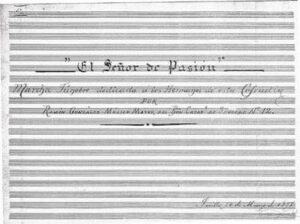 "El Señor de Pasión"
Marcha Fúnebre dedicada a los Hermanos de esta Cofradía
POR
Ramón González Músico Mayor del Bón Cazas de
Sevilla de Marzo de